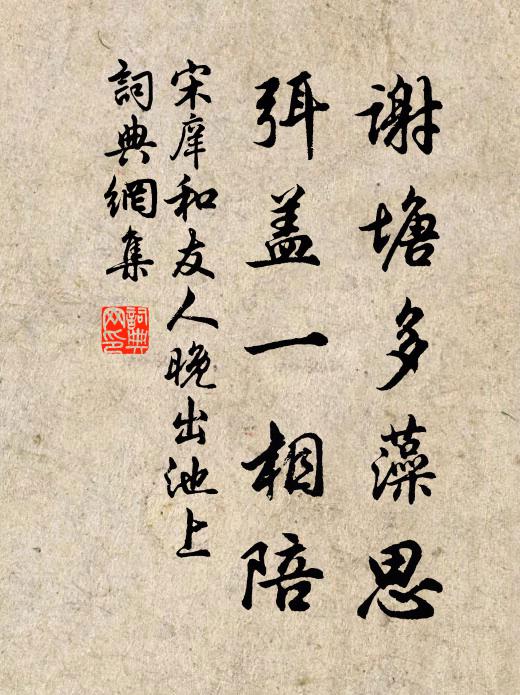 謝塘多藻思
弭盖一相陪
宋庠和友人晚出池上
詞典網集
詞典网印